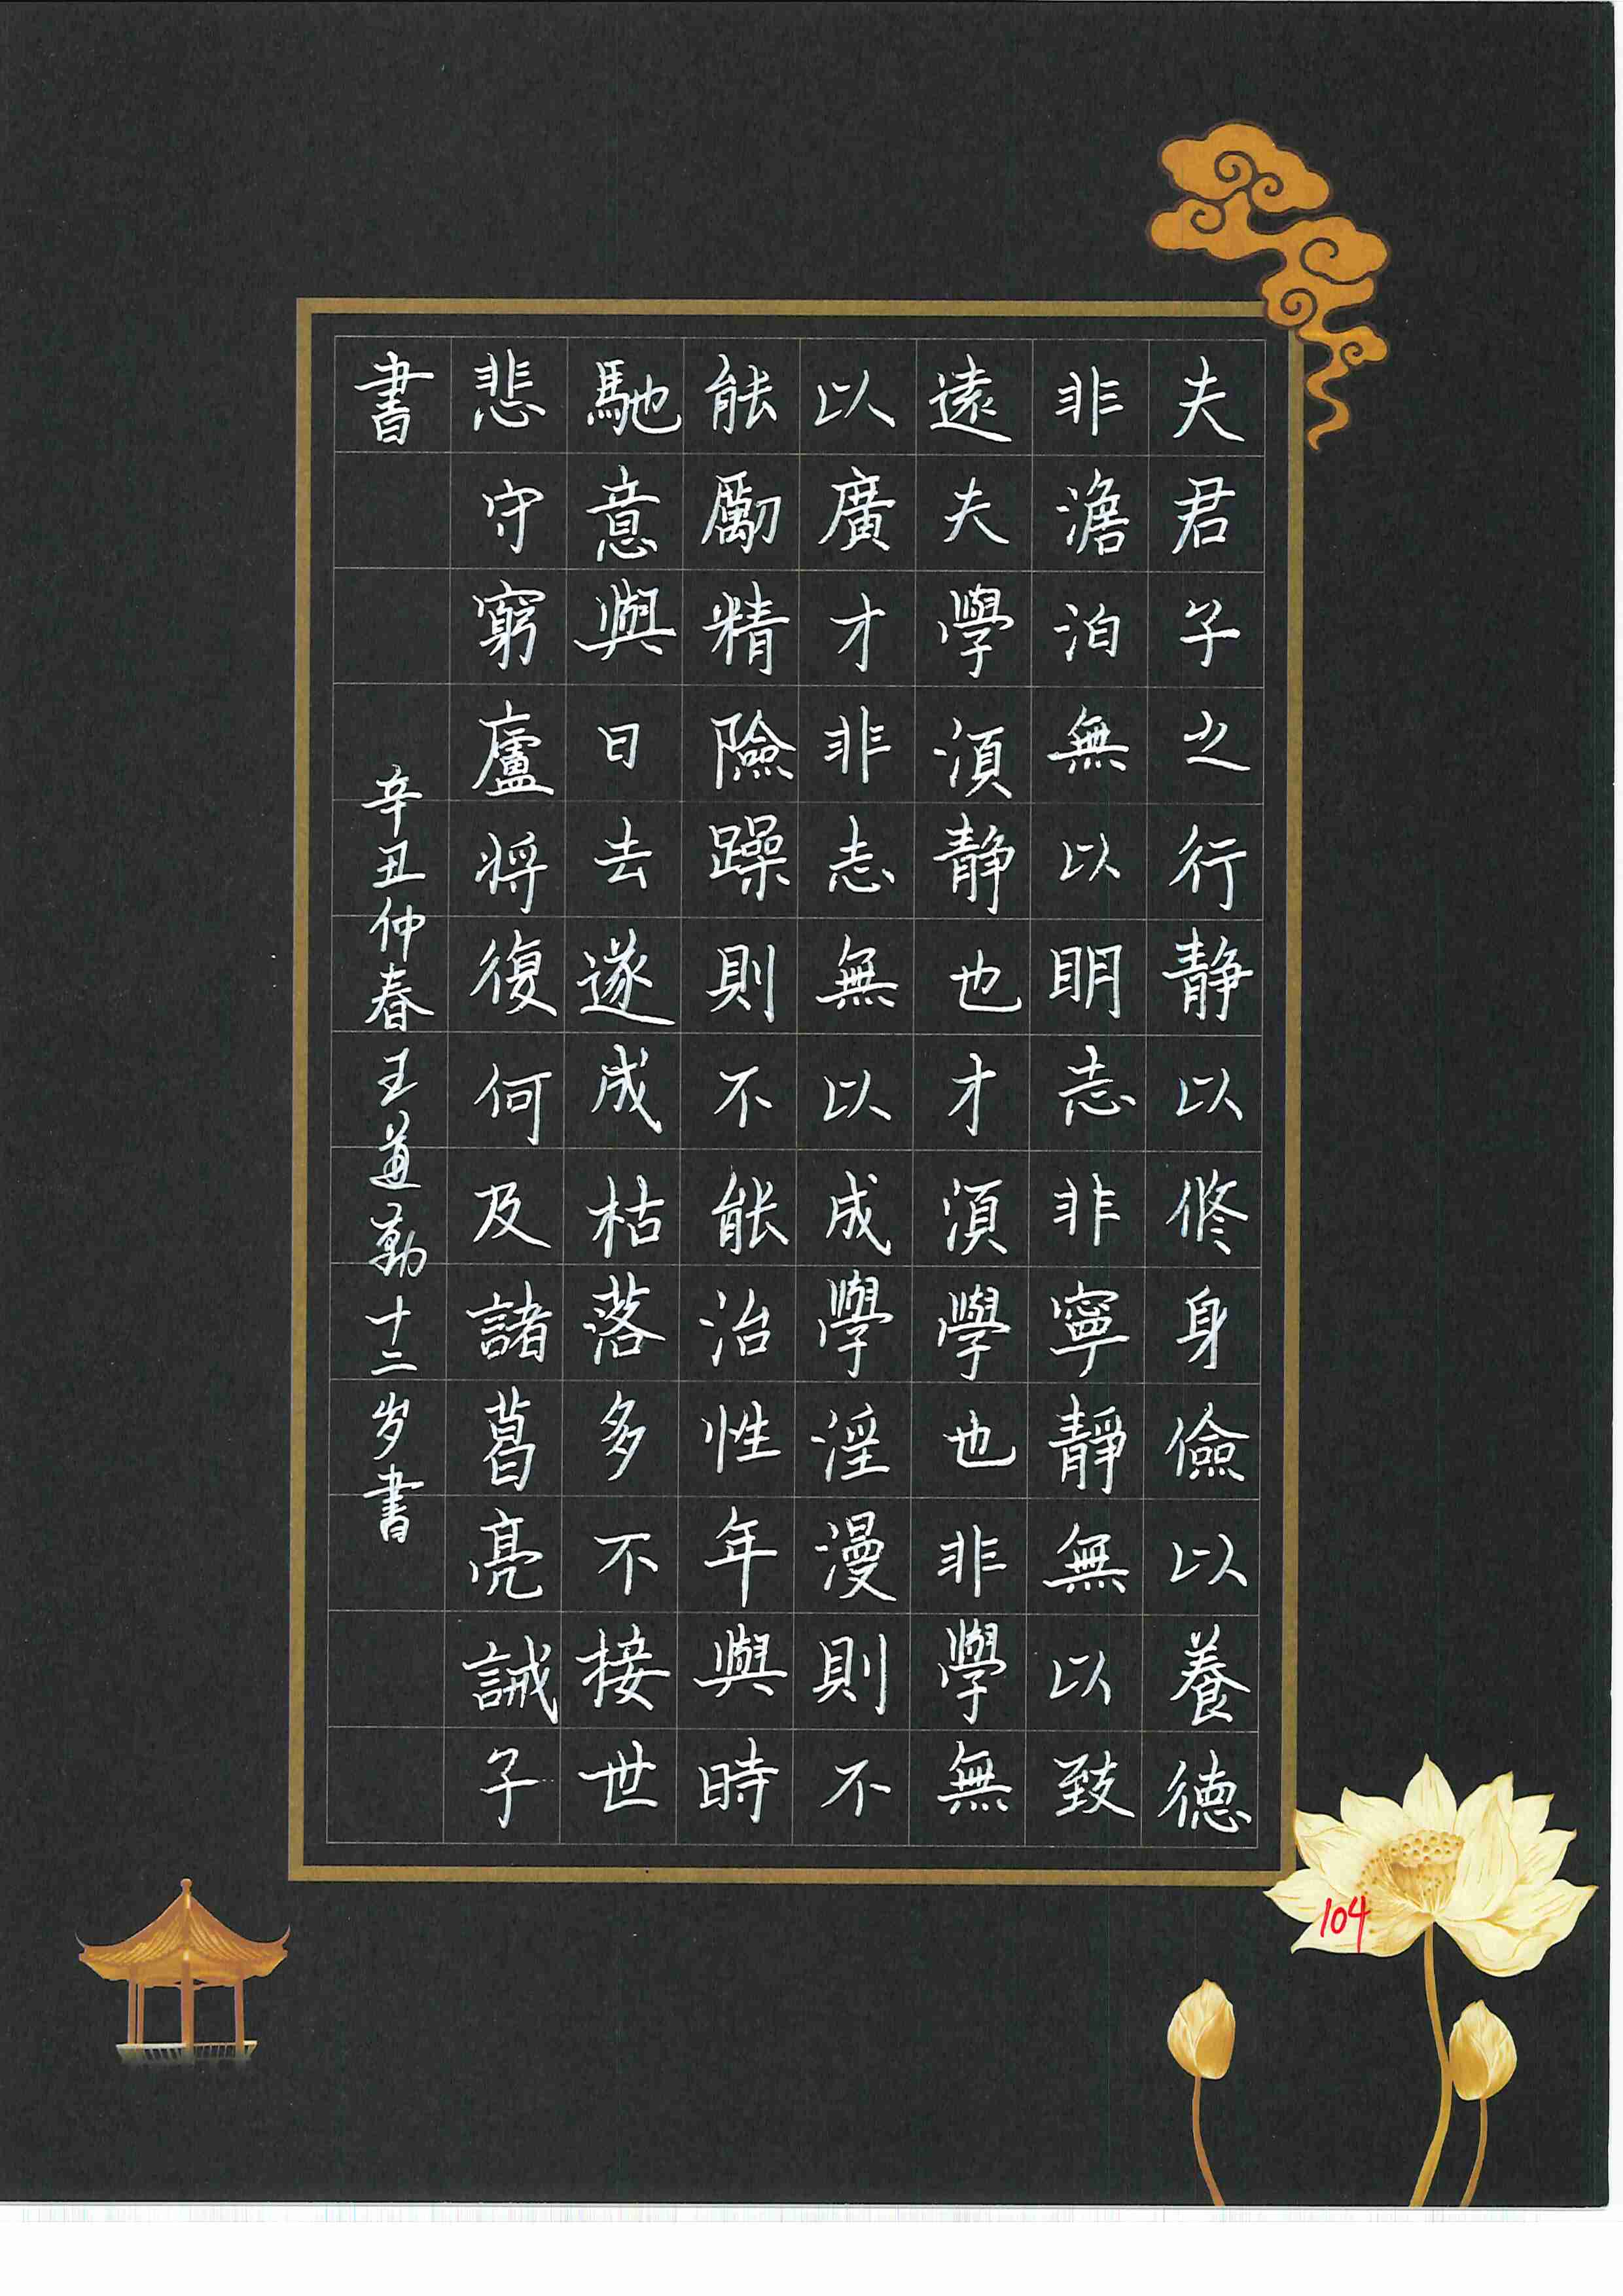 夫君子之行静以修身儉以養德
非澹泊無以明志非寧靜無以致
遠夫學須静也才須學也非學無
以廣才非志無以成學淫漫則不
能勵精險躁則不能治性年與時
馳意與日去遂成枯落多不接世
悲守窮廬将復何及諸葛亮誡子
書
辛丑仲春王道勤十二岁書
104